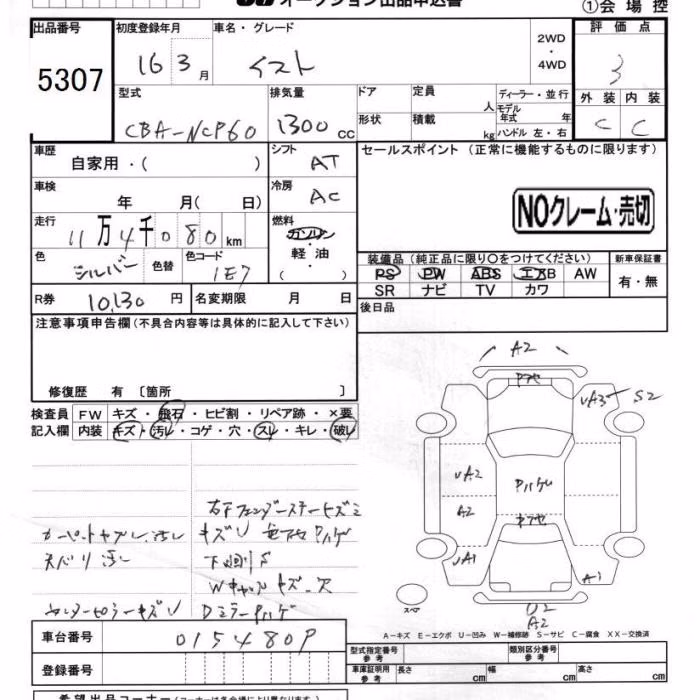 オークション出品申込書 ①会場控
出品番号 初度登録年月 車名・グレード 2WD・4WD 評価点
5307 16 3月 イスト 3
型式 排気量 ドア 定員 人 ディーラー・並行 外装 内装
CBA-NCP60 1300cc 形状 積載 kg モデル年式 年 ハンドル 左・右 C C
車歴 自家用・( ) シフト AT セールスポイント (正常に機能するものに限ります)
車検 年 月( 日) 冷房 AC
NOクレーム・売切
走行 11万4千080km 燃料 ガソリン・軽油・( )
色 シルバー 色替 色コード 1E7
装備品 (純正品に限り○をつけてください) 新車保証書
PS PW ABS エアB AW 有・無
SR ナビ TV カワ
R券 10,130円 名変期限 月 日 後日品
注意事項申告欄(不具合内容等は具体的に記入して下さい)
修復歴 有 〔箇所 〕
検査員記入欄 FW キズ・飛石・ヒビ割・リペア跡・×要
内装 キズ・汚レ・コゲ・穴・スレ・キレ・破レ
A2
UA3 S2
UA2
A2 Pハゲ
UA1 A1
U2
A2
スペア
右F フェンダーステーキズミ
カーペットヤブレ、汚レ キズU Pハゲ
天バリ汚レ 下回りS
Wキャップキズ、欠
センターピラーキズU Dミラー Pハゲ
A-キズ E-エクボ U-凹み W-補修跡 S-サビ C-腐食 XX-交換済
車台番号 015480P
型式指定番号 参考 類別区分番号 参考
登録番号 車庫証明用 参考 長さ cm 幅 cm 高さ cm
希望出品コーナー